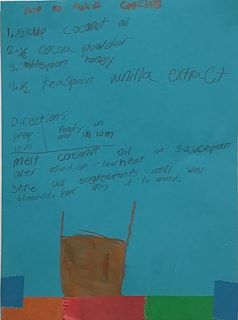 How to make
1. ½ cup coconut oil
2. ½ cocoa powder
3. tablespoon honey
4. ½ teaspoon vanilla extract
Directions
prep ready in
10m 10m
melt coconut oil in saucepan
over medium-low heat
Stir all ingredients until well
blended. Pour it to mold.